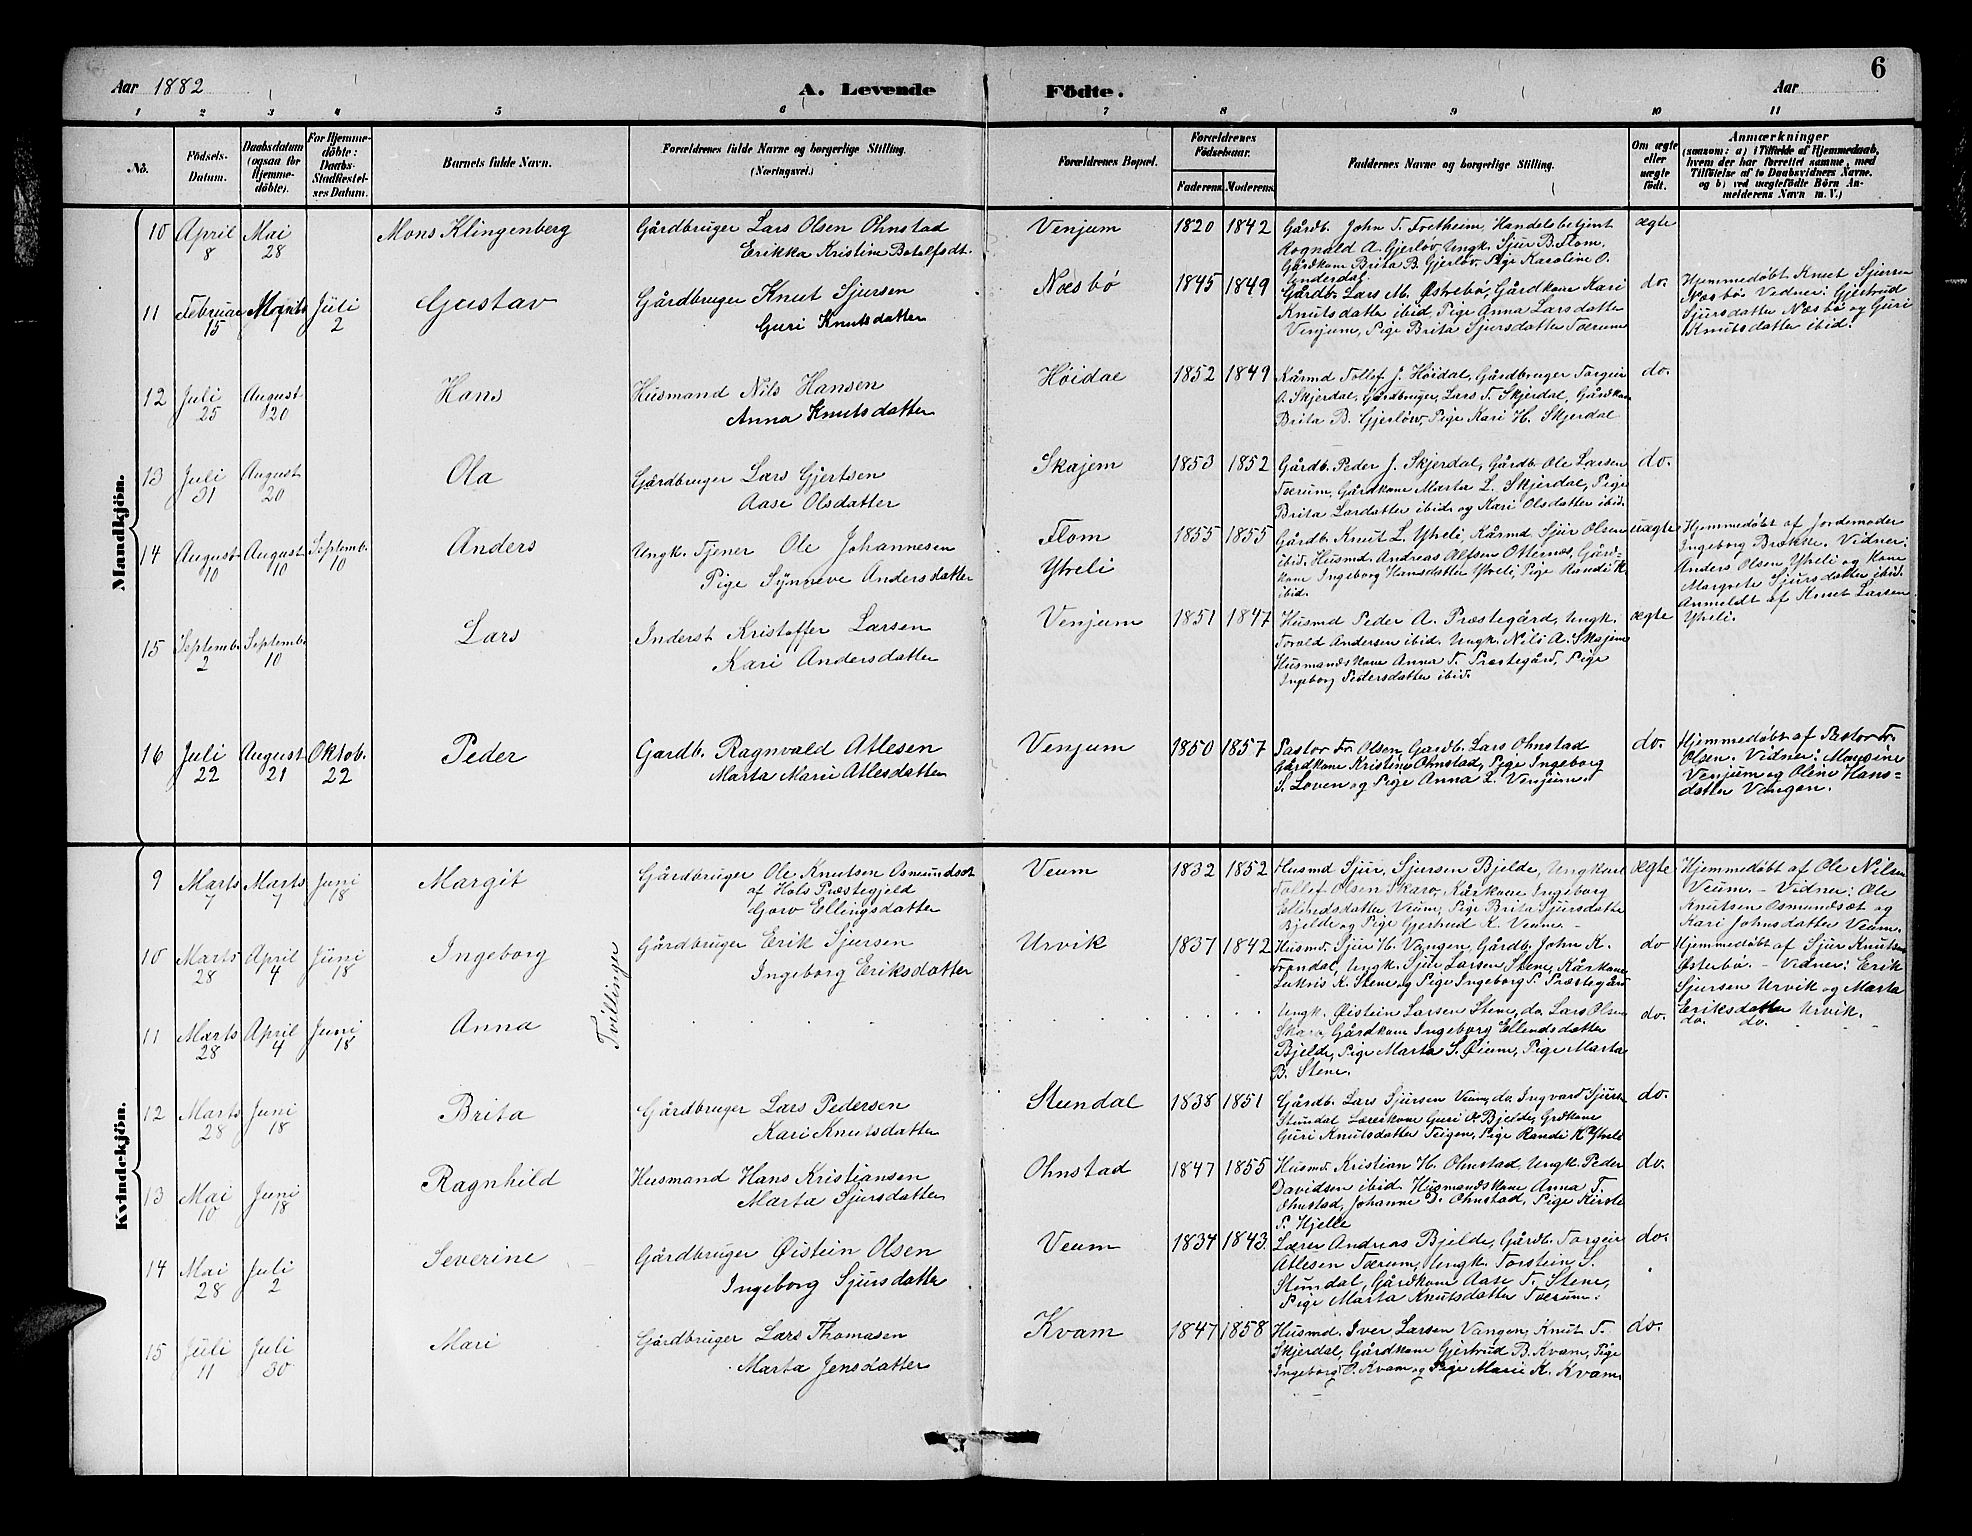 Aar 1882
A. Levende
Födte.
Aar
6
1 2 3 4 5 6 7 8 9 10 11
No.
Födsels-
Datum.
Daabsdatum
(ogsaa for
Hjemme-
döbte).
For Hjemme-
döbte:
Daabs-
Stadfæstel-
ses Datum.
Barnets fulde Navn.
Forældrenes fulde Navne og borgerlige Stilling.
(Næringsvei.)
Forældrenes Bopæl.
Forældrenes
Födselsaar.
Faderens. Moderens.
Faddernes Navne og borgerlige Stilling.
Om ægte
eller
uægte
födt.
Anmærkninger
(saasom: a) i Tilfælde af Hjemmedaab,
hvem der har forrettet samme, med
Tilföielse af to Daabsvidners Navne.
og b) ved uægtefödte Börn An-
melderens Navn m. V.)
Mandkjön.
10 April 8 Mai 28 Mons Klingenberg
Gårdbruger Lars Olsen Ohnstad
Erikka Kristine Botolfsdt.
Venjum 1820 1842
Gårdb. John T. Fretheim, Handelsbetjent
Rognald A. Gjerløv, Ungk. Sjur B. Flom.
Gårdkone Brita B. Gjerløv, Pige Karoline O.
Ynderdal.
ægte
11 Februar 15 Juli 2 Gustav
Gårdbruger Knut Sjursen
Guri Knutsdatter
Næsbø 1845 1849
Gårdb. Lars M. Østrebø, Gårdkone Kari
Knutsdatter ibid, Pige Anna Larsdatter
Venjum, Pige Brita Sjursdatter Tærum
do.
Hjemmedøbt Knut Sjursen
Næsbø. Vidner: Gjertrud
Sjursdatter Næsbø og Guri
Knutsdatter ibid.
12 Juli 25 August 20 Hans
Husmand Nils Hansen
Anna Knutsdatter
Høidal 1852 1849
Kårmd Tollef J. Høidal, Gårdbruger Torgeir
O. Skjerdal, Gårdbruger, Lars T. Skjerdal, Gårdkone
Brita B. Gjerløv, Pige Kari H. Skjerdal
do.
13 Juli 31 August 20 Ola
Gårdbruger Lars Gjertsen
Aase Olsdatter
Skajem 1853 1852
Gårdb. Peder J. Skjerdal, Gårdb. Ole Larsen
Tærum, Gårdkone Marta L. Skjerdal, Pige
Brita Larsdatter ibid. og Kari Olsdatter ibid.
do.
14 August 10 August 10 Septemb. 10 Anders
Ungk. Tjener Ole Johannesen
Pige Synneve Andersdatter
Flom
Ytreli
1855 1855
Gårdb. Knut L. Ytreli, Kårmd Sjur Olsen
ibid. Husmd. Andreas Alfsen Otternæs, Gård-
kone Ingeborg Hansdatter Ytreli, Pige Randi K.
ibid.
uægte
Hjemmedøbt af Jordemoder
Ingeborg Brække. Vidner:
Anders Olsen Ytreli og kone
Margrete Sjursdatter ibid.
Anmeldt af Knut Larsen
Ytreli.
15 Septemb. 2 Septemb. 10 Lars
Inderst Kristoffer Larsen
Kari Andersdatter
Venjum 1851 1847
Husmd Peder A. Præstegård, Ungk.
Torald Andersen ibid. Ungk. Nils A. Skajem
Husmandskone Anna T. Præstegård, Pige
Ingeborg Pedersdatter ibid.
ægte
16 Juli 22 August 21 Oktob. 22 Peder
Gardb. Ragnvald Atlesen
Marta Marie Atlesdatter
Venjum 1850 1857
Pastor Fr. Olsen, Gardb. Lars Ohnstad
Gårdkone Kristine Ohnstad, Pige Ingeborg
S. Loven og Pige Anna L. Venjum.
do.
Hjemmedøbt af Pastor Fr.
Olsen. Vidner: Monsine
Venjum og Oline Hans-
datter Vangen.
Kvindekjön.
9 Marts 7 Marts 7 Juni 18 Margit
Gårdbruger Ole Knutsen Osmundsæt
af Hols Præstegjeld
Goro Ellingsdatter
Veum 1832 1852
Husmd Sjur Sjursen Bjelde, Ungkarl
Tollef Olsen Skaro, Kårkone Ingeborg
Ellendsdatter Veum, Pige Brita Sjursdatter
Bjelde og Pige Gjertrud K. Veum.
ægte
Hjemmedøbt af Ole Nilsen
Veum. - Vidner: Ole
Knutsen Osmundsæt og
Kari Johnsdatter Veum.
10 Marts 28 April 4 Juni 18 Ingeborg
Tvillinger
Gårdbruger Erik Sjursen
Ingeborg Eriksdatter
Urvik 1837 1842
Husmd. Sjur H. Vangen, Gårdb. John K.
Frondal, Ungk. Sjur Larsen Stene, Kårkone
Lukris K. Stene og Pige Ingeborg P. Præstegård
do
Hjemmedøbt af Sjur Knutsen
Østerbø. - Vidner: Erik
Sjursen Urvik og Marta
Eriksdatter Urvik.
11 Marts 28 April 4 Juni 18 Anna
Ungk. Øistein Larsen Stene, do. Lars Olsen
Skaro, Gårdkone Ingeborg Ellendsdatter
Bjelde, Pige Marta S. Øium, Pige Marta
B. Stene.
do.
do. do.
12 Marts 28 Juni 18 Brita
Gårdbruger Lars Pedersen
Kari Knutsdatter
Stundal 1838 1851
Gårdb. Lars Sjursen Veum, do. Ingvard Sjurs.
Stundal Lærerkone Guri O. Bjelde, Grdkone
Guri Knutsdatter Teigen, Pige Randi K Ytreli
do.
13 Mai 10 Juni 18 Ragnhild
Husmand Hans Kristiansen
Marta Sjursdatter
Ohnstad 1847 1855
Husmd. Kristian H. Ohnstad, Ungk. Peder
Davidsen ibid Husmandskone Anna T.
Ohnstad, Johanne D. Ohnstad, Pige Kirsti
P. Hjelle
do.
14 Mai 28 Juli 2 Severine
Gårdbruger Øistein Olsen
Ingeborg Sjursdatter
Veum 1834 1843
Lærer Andreas Bjelde, Gårdb. Torgeir
Atlesen Tærum, Ungk. Torstein S.
Stundal, Gårdkone Aase T. Stene,
Pige Marta Knutsdatter Tærum.
do.
15 Juli 11 Juli 30 Mari
Gårdbruger Lars Thomasen
Marta Jensdatter
Kvam 1847 1858
Husmd. Iver Larsen Vangen, Knut T.
Skjerdal, Gårdkone Gjertrud B. Kvam, Pige
Ingeborg O. Kvam og Pige Marie K. Kvam
do.